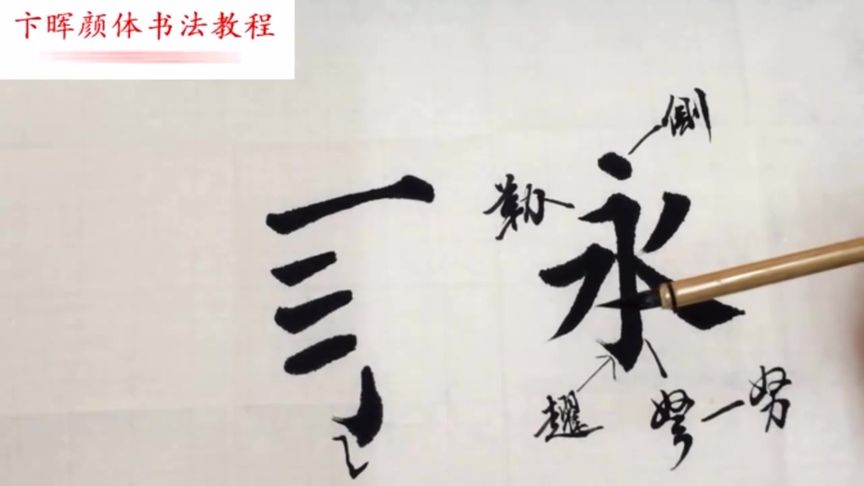 卞晖颜体书法教程
侧
勒
永
三
趯
弩一努